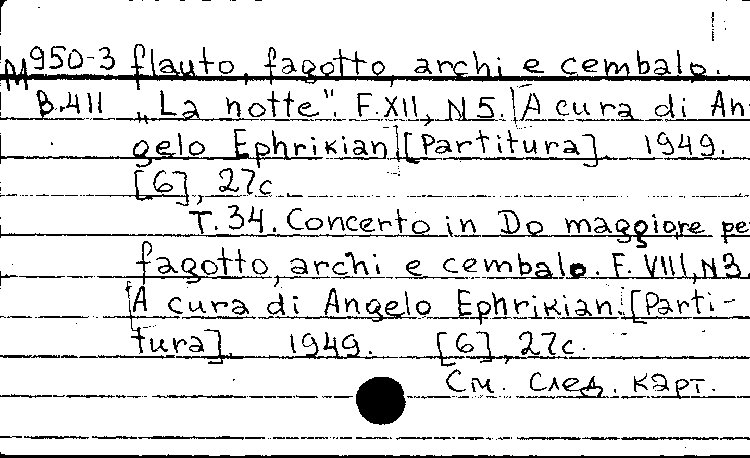 M 950-3 flauto, fagotto, archi e cembalo.
B.411 „La notte". F.XII, N 5. [A cura di An
gelo Ephrikian] [Partitura]. 1949.
[6], 27c.
T. 34. Concerto in Do maggiore pe
fagotto, archi e cembalo. F. VIII, N 3.
[A cura di Angelo Ephrikian. [Parti-
tura]. 1949. [6], 27c.
См. след. карт.